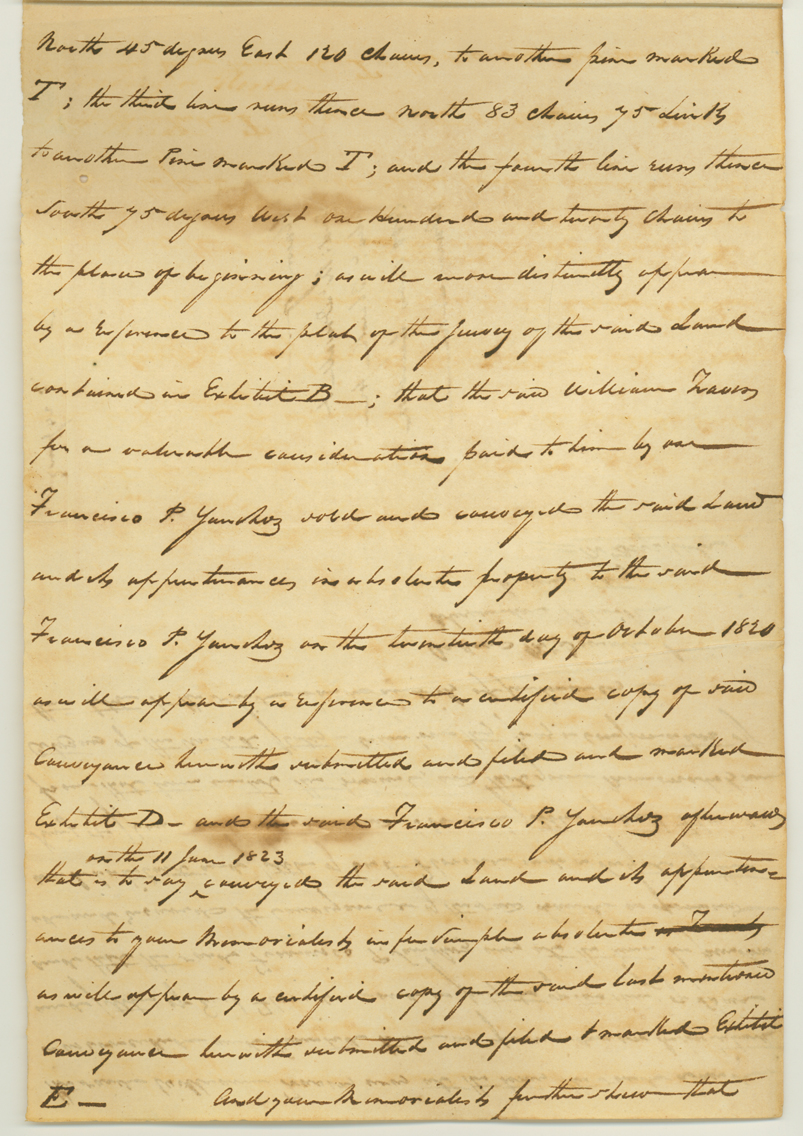 North 45 degrees East 120 Chains, to another pine marked
T; the third line runs thence North 83 Chains 75 Links
to another Pine marked T; and the fourth line runs thence
South 75 degrees West one hundred and twenty Chains to
the place of beginning; as will more distinctly appear
by a reference to the plat of the Survey of the said Land
contained in Exhibit B —; that the said William Travers
for a valuable consideration paid to him by one
Francisco P. Sanchez sold and conveyed the said Land
and its appurtenances in absolute property to the said
Francisco P. Sanchez on the twentieth day of October 1820
as will appear by a reference to a certified copy of said
Conveyance herewith submitted and filed and marked
Exhibit D – and the said Francisco P. Sanchez afterwards
on the 11 June 1823
that is to say ^ conveyed the said Land and its appurten=
ances to your Memorialists in fee simple absolute
as will appear by a certified copy of the said last mentioned
Conveyance herewith submitted and filed & marked Exhibit
E — And your Memorialists further shew that